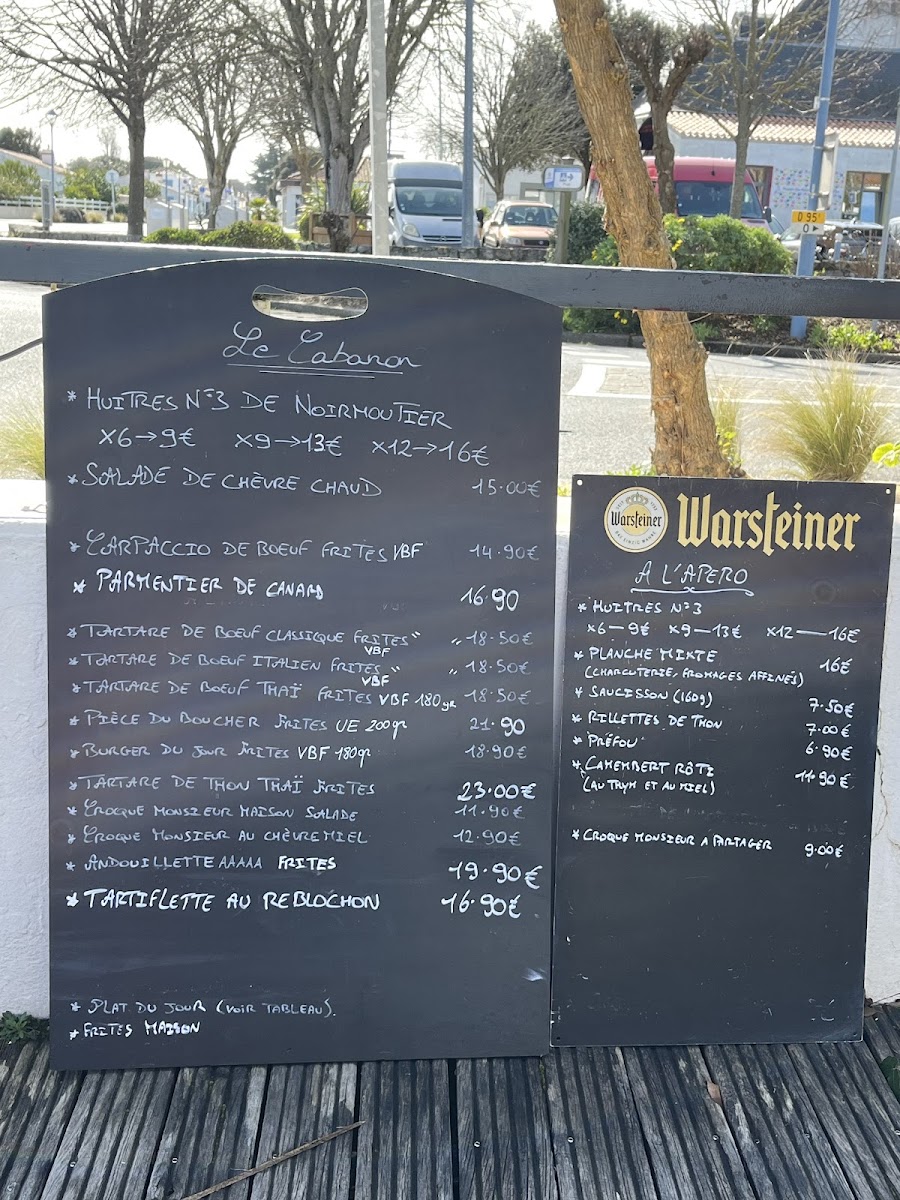 Le Cabanon
* HUITRES N°3 DE NOIRMOUTIER
x6→9€ x9→13€ x12→16€
* SALADE DE CHÈVRE CHAUD 15.00€
* CARPACCIO DE BOEUF FRITES VBF 14.90€
* PARMENTIER DE CANARD 16.90
* TARTARE DE BOEUF CLASSIQUE FRITES " " 18.50€
VBF
* TARTARE DE BOEUF ITALIEN FRITES " " 18.50€
VBF
* TARTARE DE BOEUF THAÏ FRITES VBF 180gr 18.50€
* PIÈCE DU BOUCHER FRITES UE 200gr 21.90
* BURGER DU JOUR FRITES VBF 180gr 18.90€
* TARTARE DE THON THAÏ FRITES 23.00€
* CROQUE MONSIEUR MAISON SALADE 11.90€
* CROQUE MONSIEUR AU CHÈVRE MIEL 12.90€
* ANDOUILLETTE AAAAA FRITES 19.90€
* TARTIFLETTE AU REBLOCHON 16.90€
* PLAT DU JOUR (VOIR TABLEAU).
* FRITES MAISON
Warsteiner
Warsteiner
A L'APERO
* HUITRES N°3
x6—9€ x9—13€ x12—16€
* PLANCHE MIXTE 16€
(CHARCUTERIE, FROMAGES AFFINÉS)
* SAUCISSON (160g) 7.50€
* RILLETTES DE THON 7.00€
* PRÉFOU 6.90€
* CAMEMBERT RÔTI 11.90€
(AU THYM ET AU MIEL)
* CROQUE MONSIEUR A PARTAGER 9.00€
D 95